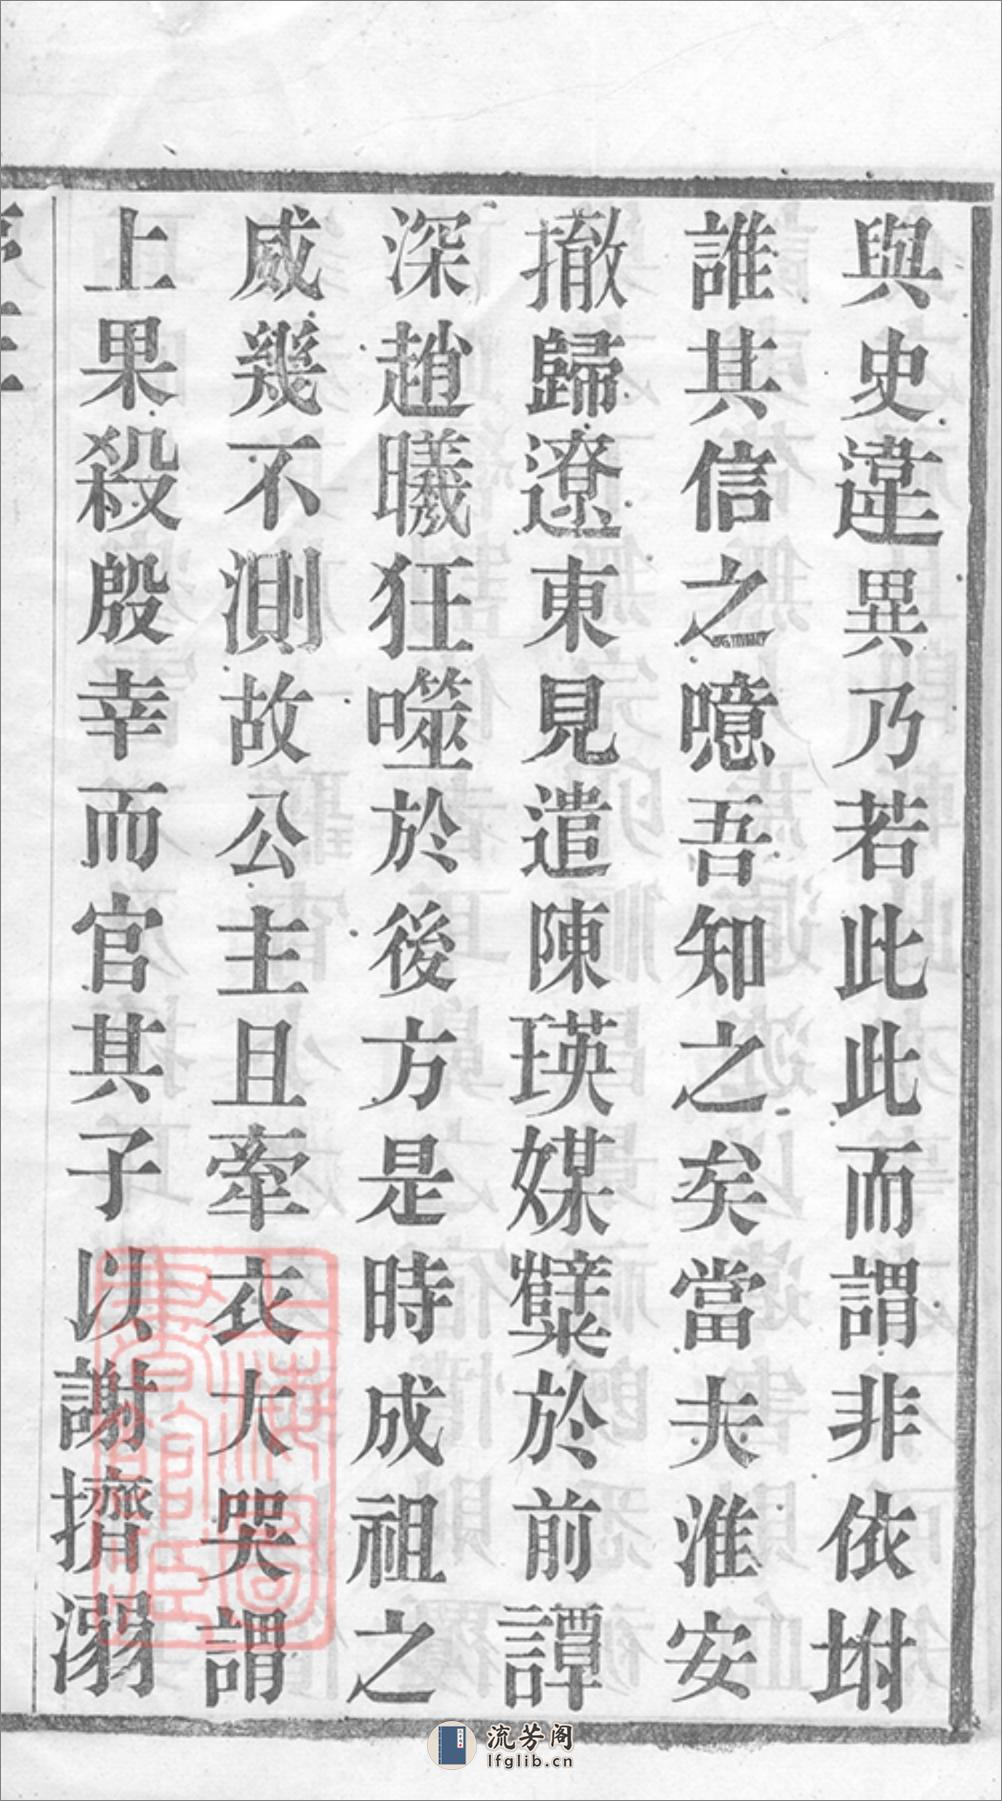 與史違異乃若此此而謂非依坿
誰其信之噫吾知之矣當夫淮安
撤歸遼東見遣陳瑛媒糱於前譚
深趙曦狂噬於後方是時成祖之
威幾不測故公主且牽衣大哭謂
上果殺殷幸而官其子以謝擠溺
上海圖書館臧
流芳阁
lfglib.cn